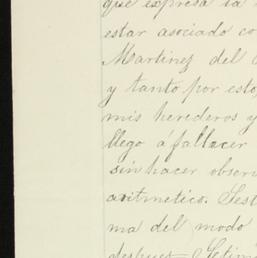 que expresa la
estar asociado co
Martinez del
y tanto por esto,
mis herederos y
llego á fallacer
sin hacer obser
aritmetico. Sest
ma del modo
despues = Setim